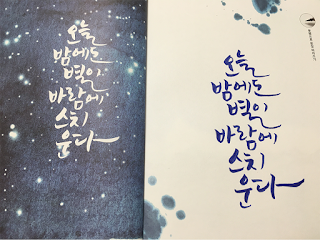 오늘
밤에도
별이
바람에
스치
운다
오늘
밤에도
별이
바람에
스치
운다